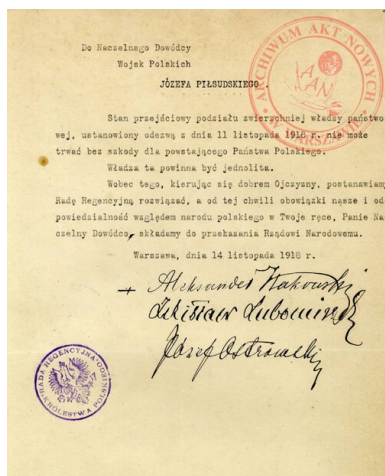 ARCHIWUM AKT NOWYCH
W WARSZAWIE
AAN
Do Naczelnego Dowódcy
Wojsk Polskich
JÓZEFA PIŁSUDSKIEGO.
Stan przejściowy podziału zwierzchniej władzy państwo
wej, ustanowiony odezwą z dnia 11 listopada 1918 r. nie może
trwać bez szkody dla powstającego Państwa Polskiego.
Władza ta powinna być jednolita.
Wobec tego, kierując się dobrem Ojczyzny, postanawiamy
Radę Regencyjną rozwiązać, a od tej chwili obowiązki nasze i od
powiedzialność względem narodu polskiego w Twoje ręce, Panie Na
czelny Dowódco, składamy do przekazania Rządowi Narodowemu.
Warszawa, dnia 14 listopada 1918 r.
+ Aleksander Kakowski
Zdzisław Lubomirski
Józef Ostrowski
RADA REGENCYJNA
KRÓLESTWA POLSKIEGO